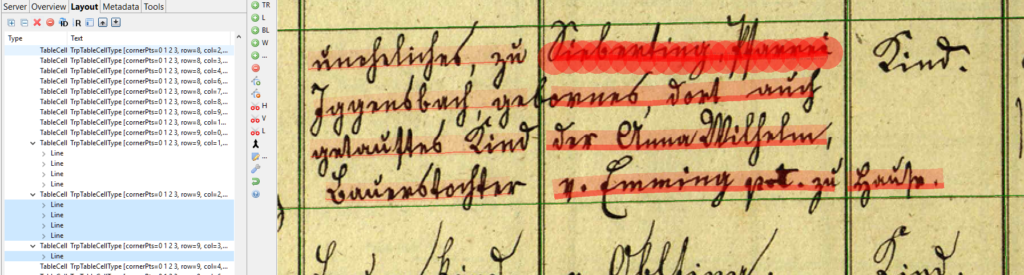 Server Overview Layout Metadata Tools
Type Text
TableCell TrpTableCellType [cornerPts=0 1 2 3, row=8, col=2,...
TableCell TrpTableCellType [cornerPts=0 1 2 3, row=8, col=3,...
TableCell TrpTableCellType [cornerPts=0 1 2 3, row=8, col=4,...
TableCell TrpTableCellType [cornerPts=0 1 2 3, row=8, col=6,...
TableCell TrpTableCellType [cornerPts=0 1 2 3, row=8, col=7,...
TableCell TrpTableCellType [cornerPts=0 1 2 3, row=8, col=8,...
TableCell TrpTableCellType [cornerPts=0 1 2 3, row=8, col=9,...
TableCell TrpTableCellType [cornerPts=0 1 2 3, row=8, col=1...
TableCell TrpTableCellType [cornerPts=0 1 2 3, row=9, col=0,...
TableCell TrpTableCellType [cornerPts=0 1 2 3, row=9, col=1,...
Line
Line
Line
Line
TableCell TrpTableCellType [cornerPts=0 1 2 3, row=9, col=2,...
Line
Line
Line
Line
TableCell TrpTableCellType [cornerPts=0 1 2 3, row=9, col=3,...
Line
TableCell TrpTableCellType [cornerPts=0 1 2 3, row=9, col=4,...
TR
L
BL
W
...
H
V
L
...
uneheliches, zu Sieberting, Pfarrei Kind.
Iggensbach, gebornes, dort auch
getauftes Kind der Anna Wilhelm,
Bauerstochter v. Emming zu Hause.
Kind